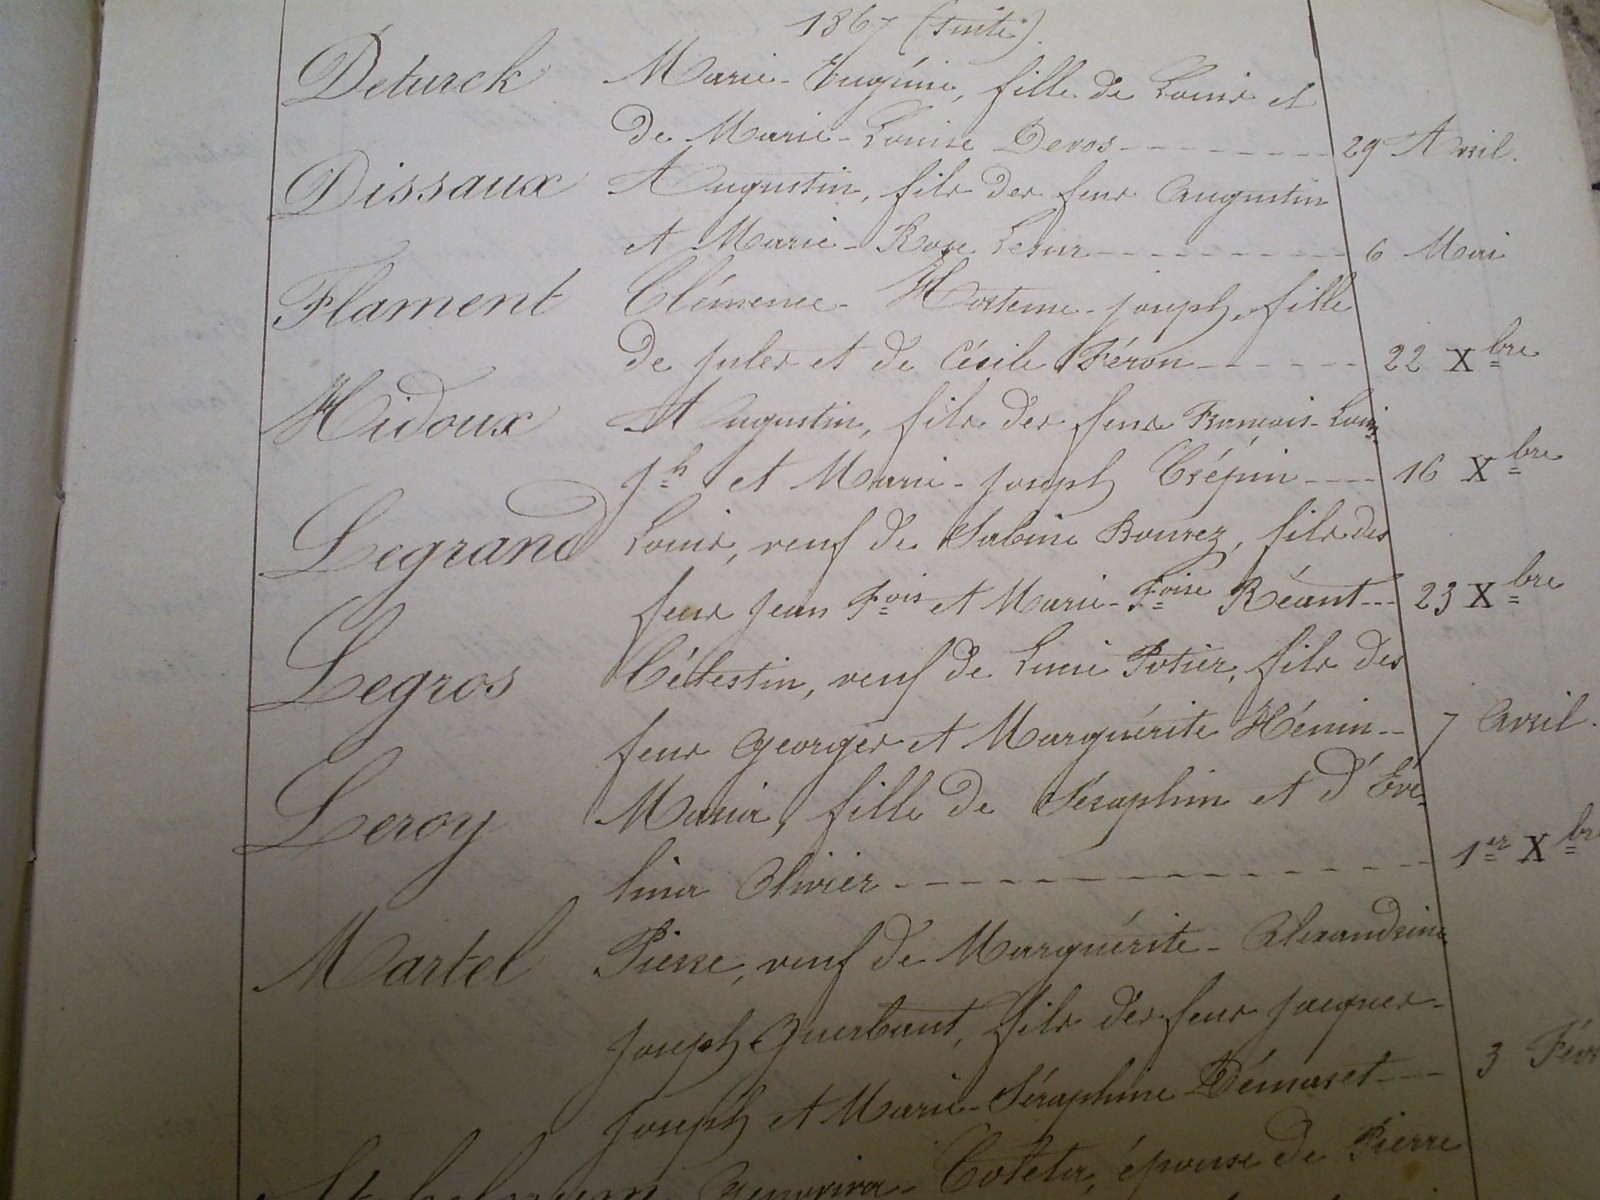 1867 (suite).
Deturck Marie-Eugénie, fille de Louis et
de Marie-Louise Devos --------- 29 Avril.
Dissaux Augustin, fils des feus Augustin
et Marie-Rose Lesur ---------- 6 Mai
Flament Clémence-Hortense-Joseph, fille
de Jules et de Cécile Féron ------ 22 Xbre
Hidoux Augustin, fils des feus François-Louis
Jh et Marie-Joseph Crépin ---- 16 Xbre
Legrand Louis, veuf de Sabine Bourez, fils des
feus Jean Fois et Marie-Foise Réant --- 23 Xbre
Legros Célestin, veuf de Lucie Potier, fils des
feus Georges et Marguérite Hénin -- 7 Avril.
Leroy Maria, fille de Séraphin et d'Éve-
lina Olivier -------------- 1er Xbr
Martel Pierre, veuf de Marguérite-Alexandrine
Joseph Querbant, fils des feus Jacques-
Joseph et Marie-Séraphine Démaret --- 3 Févr
Coleta, épouse de Pierre